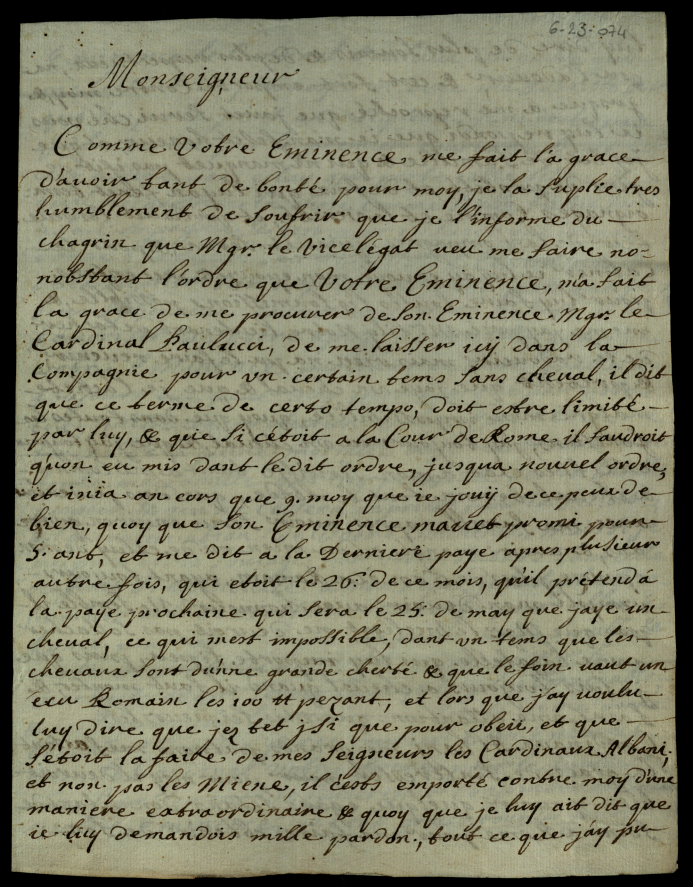 6-23-074
Monseigneur
Comme Votre Eminence me fait la grace
d'avoir tant de bonté pour moy, je la suplie tres
humblement de soufrir que je l'informe du
chagrin que Mgr. le Vicelégat veu me faire no=
nobstant l'ordre que Votre Eminence, m'a fait
la grace de me procurer de son Eminence Mgr. le
Cardinal Paulucci, de me laisser icÿ dans la
Compagnie pour vn certain tems sans cheval, il dit
que ce terme de certo tempo, doit estre limité
par luy, & que si cétoit a la Cour de Rome il faudroit
qu'on eu mis dant le dit ordre, jusqua nouvel ordre,
et inia an cors que 9. moy que ie jouÿ de ce peux de
bien, quoy que Son Eminence mauet promi pour
5. ant, et me dit a la Derniere paye apres plusieur
autre fois, qui etoit le 26: de ce mois, qu'il prétend á
la paye prochaine qui sera le 25: de may que jaye un
cheval, ce qui mest impossible, dant vn tems que les
chevaux sont d'unne grande cherté & que le foin vaut un
ecu Romain les 100 tt pezant, et lors que j'ay voulu
luy dire que jez tet jsi que pour obeir, et que
s'étoit la faire de mes Seigneurs les Cardinaux Albani,
et non pas les Miene, il c'ests emporté contre moy d'une
maniere extraordinaire & quoy que je luy ait dit que
ie luy demandois mille pardon, tout ce que j'ay pu